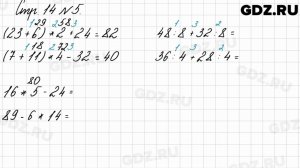 GDZ.RU
Стр. 14 №5.
1 29 2 58 3
(23+6)*2+24=82
1 18 2 72 3
(7+11)*4-32=40
80
16*5-24=
89-6*14=
1 3 2
48:8+32:8=
1 3 2
36:4+28:4=
GDZ.RU